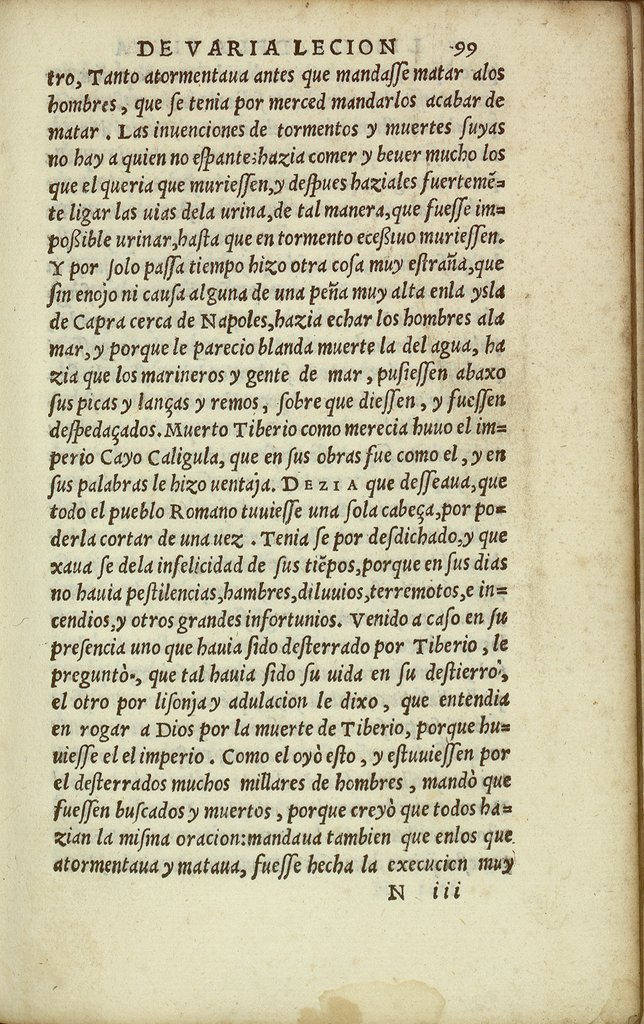 DE VARIA LECION 99
tro, Tanto atormentaua antes que mandaſſe matar alos
hombres, que ſe tenia por merced mandarlos acabar de
matar. Las inuenciones de tormentos y muertes ſuyas
no hay a quien no eſpante: hazia comer y beuer mucho los
que el queria que murieſſen, y deſpues haziales fuertemẽ=
te ligar las uias dela urina, de tal manera, que fueſſe im=
poßible urinar, haſta que en tormento eceßiuo murieſſen.
Y por ſolo paſſa tiempo hizo otra coſa muy eſtraña, que
ſin enojo ni cauſa alguna de una peña muy alta enla ysla
de Capra cerca de Napoles, hazia echar los hombres ala
mar, y porque le parecio blanda muerte la del agua, ha
zia que los marineros y gente de mar, puſieſſen abaxo
ſus picas y lanças y remos, ſobre que dieſſen, y fueſſen
deſpedaçados. Muerto Tiberio como merecia huuo el im=
perio Cayo Caligula, que en ſus obras fue como el, y en
ſus palabras le hizo uentaja. DEZIA que deſſeaua, que
todo el pueblo Romano tuuieſſe una ſola cabeça, por po=
derla cortar de una uez. Tenia ſe por deſdichado, y que
xaua ſe dela infelicidad de ſus tiẽpos, porque en ſus dias
no hauia peſtilencias, hambres, diluuios, terremotos, e in=
cendios, y otros grandes infortunios. Venido a caſo en ſu
preſencia uno que hauia ſido deſterrado por Tiberio, le
preguntò, que tal hauia ſido ſu uida en ſu deſtierro,
el otro por liſonja y adulacion le dixo, que entendia
en rogar a Dios por la muerte de Tiberio, porque hu=
uieſſe el el imperio. Como el oyò eſto, y eſtuuieſſen por
el deſterrados muchos millares de hombres, mandò que
fueſſen buſcados y muertos, porque creyò que todos ha=
zian la miſma oracion: mandaua tambien que enlos que
atormentaua y mataua, fueſſe hecha la execucion muy
N iii